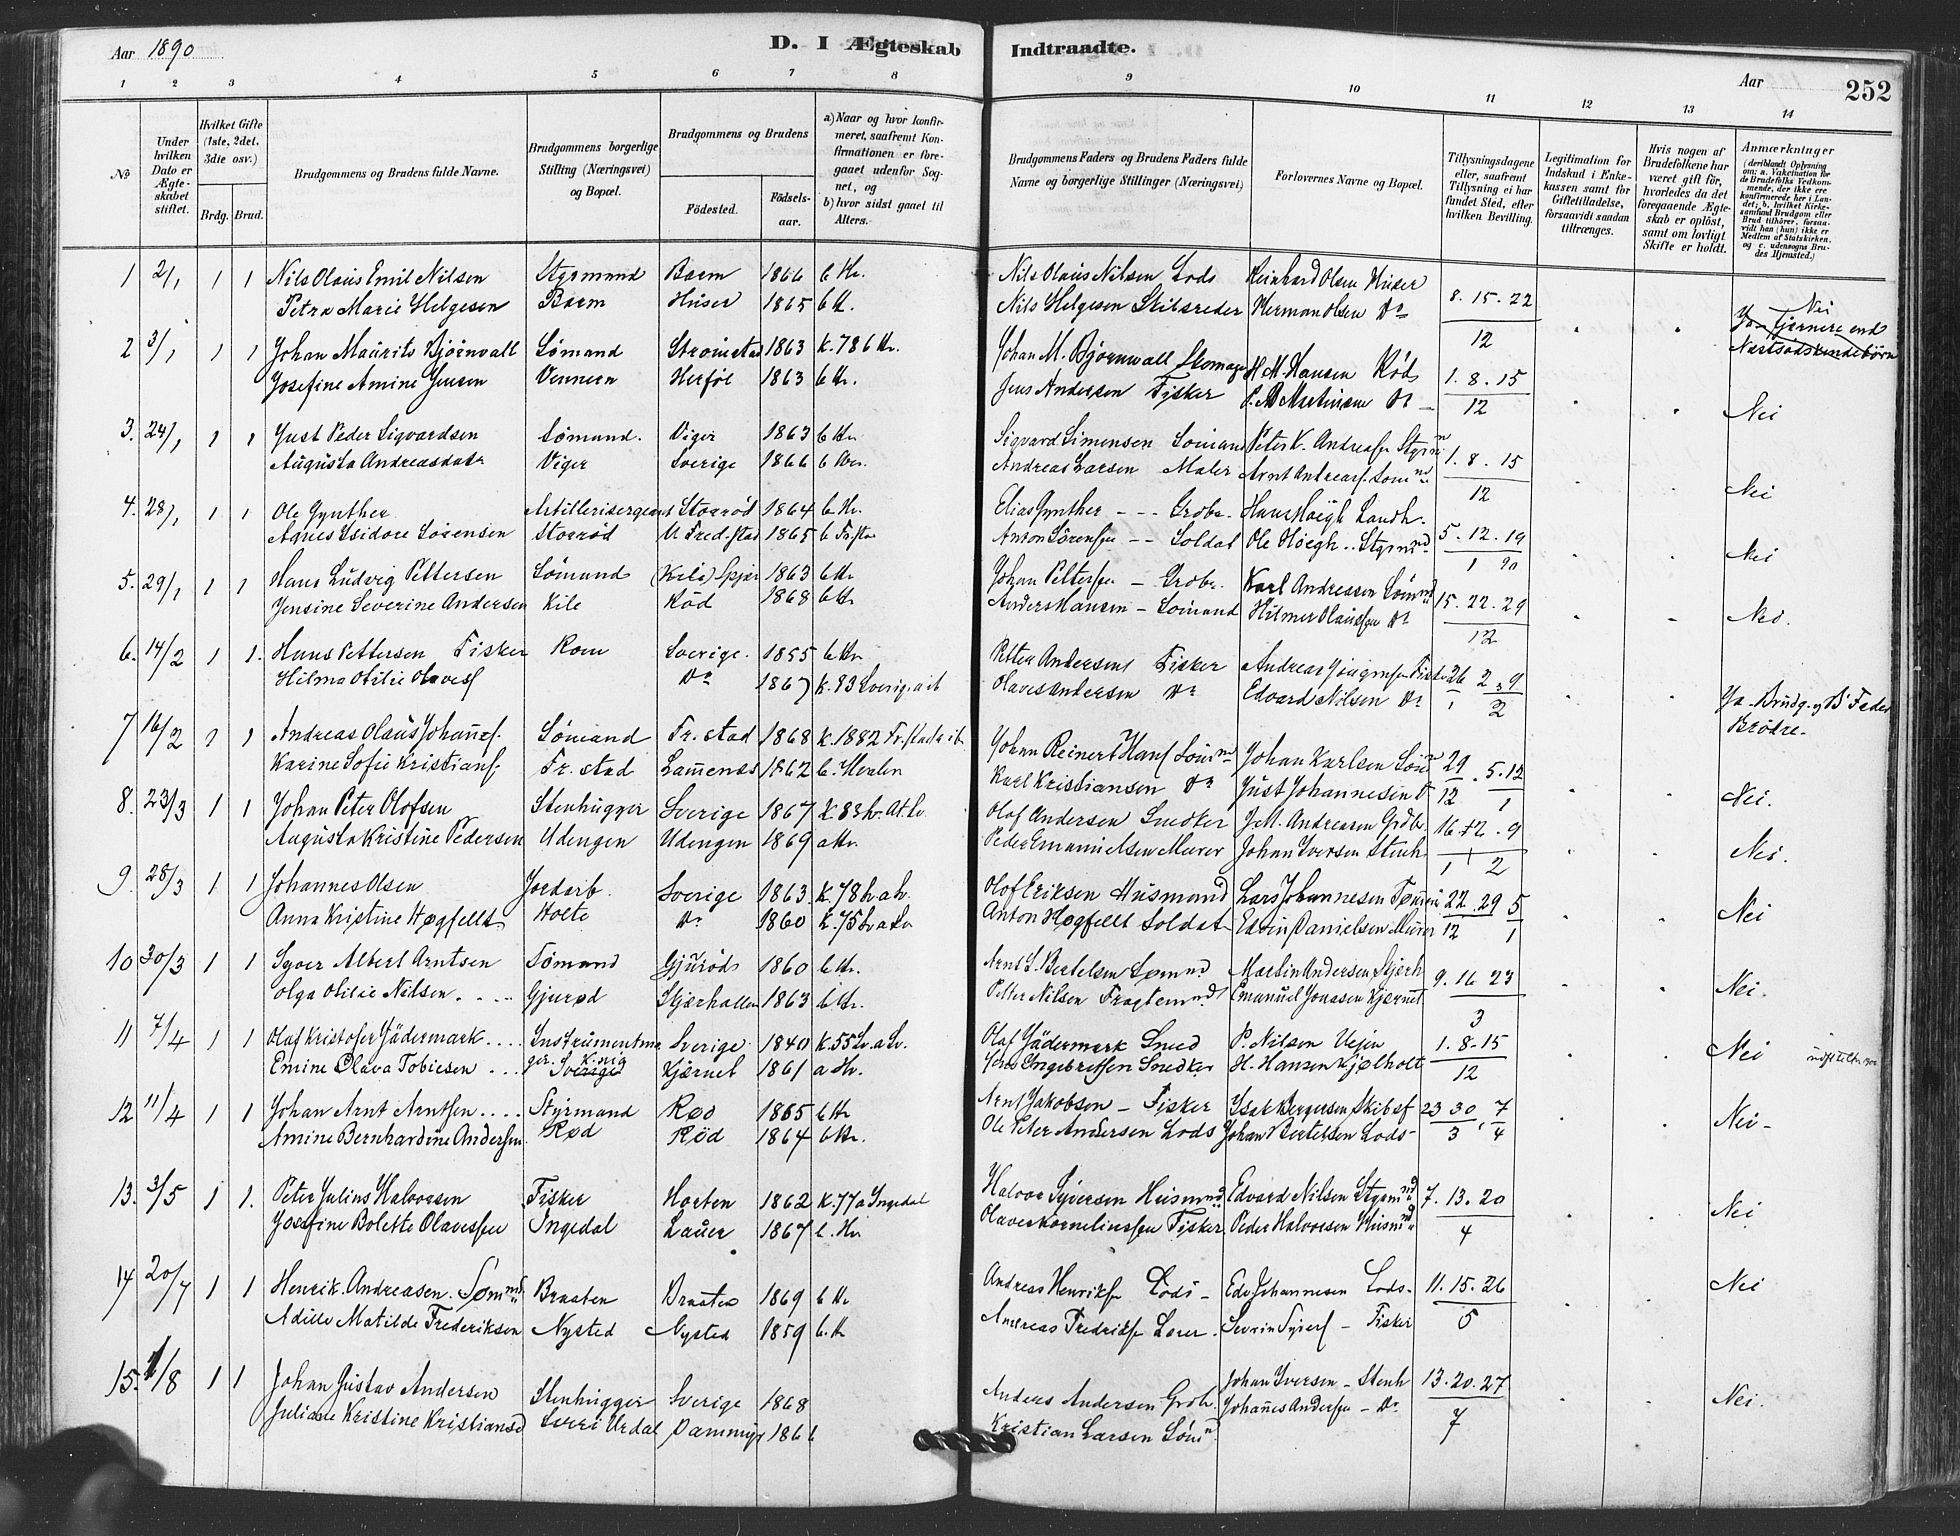 Aar 1890
D. I Ægteskab Indtraadte.
Aar 252
1 2 3 4 5 6 7 8 9 10 11 12 13 14
No
Under hvilken Dato er Ægteskabet stiftet.
Hvilket Gifte (1ste, 2det, 3die osv.)
Brdg. Brud.
Brudgommens og Brudens fulde Navne.
Brudgommens borgerlige Stilling (Næringsvei) og Bopæl.
Brudgommens og Brudens
Fødested. Fødselsaar.
a) Naar og hvor konfirmeret, saafremt Konfirmationen er foregaaet udenfor Sognet, og
b) hvor sidst gaaet til Alters.
Brudgommens Faders og Brudens Faders fulde Navne og borgerlige Stillinger (Næringsvei)
Forlovernes Navne og Bopæl.
Tillysningsdagene eller, saafremt Tillysning ei har fundet Sted, efter hvilken Bevilling.
Legitimation for Indskud i Enkekassen samt for Giftetilladelse, forsaavidt saadan tiltrænges.
Hvis nogen af Brudefolkene har været gift før, hvorledes da det foregaaende Ægteskab er opløst, samt om lovligt Skifte er holdt.
Anmærkninger
(deriblandt Oplysning om: a. Vakcination for de Brudefolks Vedkommende, der ikke ere konfirmerede her i Landet; b. hvilket Kirkesamfund Brudgom eller Brud tilhører, forsaavidt han (hun) ikke er Medlem af Statskirken, og c. udensogns Brudes Hjemsted.)
1 2/1 1 1 Nils Olaus Emil Nilsen Styrmand 1866 b Kr. Nils Olaus Nilsen Lods Reinhard Olsen Huser 8. 15. 22 Nei
Petra Marie Helgesen Huser 1865 b K. Nils Helgesen Skibsreder Herman Olsen Do 12 Ja fjernere end Næstsødskendebørn
2 3/1 1 1 Johan Maurits Bjørnvall Sømand Strømstad 1863 K. 78 b Kr. Johan M. Bjørnwall Skomager H. M. Hansen Rød 1. 8. 15
Josefine Amine Jensen Vennern Herføl 1863 b Kr. Jens Andersen Fisker P. M Martinsen Do 12 Nei
3. 24/1 1 1 Just Peder Sigvardsen Sømand. Viger 1863 b Kr Sigvard Simensen Sømand Peter K. Andreasen Styrmn 1. 8. 15
Augusta Andreasdatr Viger Sverige 1866 b Kr. Andreas Larsen Maler Arnt Andreasf. Sømn 12 Nei
4. 28/1 1 1 Ole Gynther Artillerisergeant Storrød 1864 b Kr. Elias Gynther - - - Grobr. Hans Høigh Landh. 5. 12. 19
Agnes Isidore Sørensen Storrød Fred.stad 1865 b Fr.sta Anton Sörensen - - Soldat Ole Höegh .. Styrmnd 1 90 Nei
5. 29/1 1 1 Hans Ludvig Pettersen Sømand (Kile) Spjær 1863 b Kr Johan Pettersen - Grobr. Karl Andreasen Sømnd 15. 22. 29
Jensine Severine Andersen Kile Rød 1868 b Kr Anders Hansen - Sømand Hilmer Olaussen Do 12 Nei.
6. 14/2 1 1. Hans Pettersen Fisker Rom Sverige. 1855 b Kr. Petter Andersen Fisker Andreas Fisker 26 2. 9
Hilma Otilie Olavesf Do 1867 K. 83 Sverige a it Olaves Andersen Do Edvard Nilsen Do 1 2 Ja. Brudg. og B' Fader Brødre.
7 16/2 1 1 Andreas Olaus Johannesf. Sømand Fr. stad 1868 K. 1882 Fr.stad Johan Reinert Hansf Sömnd Johan Karlsen Søm 29. 5. 12
Karine Sofie Kristiansf. Fr. stad 1862 b. Hvaler Karl Kristiansen Do Just Johannesen D 12 1 Nei.
8. 23/3 1 1 Johan Peter Olofsen Stenhugger Sverige 1867 K 83 Sv. At. Sv. Olof Andersen Snedker J. M. Andreasen Grdbr. 16. 2. 9
Augusta Kristine Pedersen Udengen Udengen 1869 a Kr. Peder Emanuelsen Murer Johan Iversen Stenh 1 2 Nei.
9. 28/3 1 1 Johannes Olsen Jordarb. Sverige 1863. K. 78 Sv a Sv. Olof Eriksen Husmand Lars Johannesen 22. 29 5
Anna Kristine Høgfellt Holte Do 1860 K. 75 Sv a Sv Anton Høgfellt Soldat Edvin Danielsen Murer 12 1 Nei
10 30/3 1 1 Syver Albert Arntsen Sømand Gjurød 1860 b Kr. Arnt S. Bertelsen Sømnd Martin Andersen Skjærh 9. 16 23
Olga Otilie Nilsen. . . . . Gjurød Skjærhallen 1863 b Kr. Petter Nilsen Fragtemnd Emanuel Jonassen Kjærnet 3 Nei.
11 7/4 1 1 Olaf Kristofer Jädermark . . . . Instrumentma Sverige 1840 K. 55 Sv. a Sv. Olaf Jädermark Smed P. Nilsen Vejen 1. 8. 15
Emine Olava Tobiesen . . . ger. Sverige Kjærnet 1861 a Kr. Engebretsen Snedker H. Hansen Kjølholt 12 Nei
12 11/4 1 1 Johan Arnt Arntsen . . . . Styrmand Rød 1865 b Kr Arnt Jakobsen - Fisker Isak Bergersen Skibsf 23 30. 7
Amine Bernhardine Andersen. Rød Rød 1864 b Kr. Ole Peter Andersen Lods Johan Bertelsen Lods - 3 4 Nei -
13. 3/5 1 1. Peter Julius Halvorsen Fisker Horten 1862 K. 77 a Ingedal Halvor Syversen Husmnd Edvard Nilsen Styrmnd 7. 13. 20
Josefine Bolette Olavessen Ingedal Lauer 1867 b. Kr Olaves Korneliussen Fisker Peder Halvorsen Husmnd 4 Nei
14 20/7 1 1 Henrik Andreasen. Sømnd Braaten Braaten 1869 b Kr Andreas Henriksen Lods - Edv Johannesen Lods. 11. 15. 26
Adille Matilde Frederiksen Nysted Nysted 1859 b. Kr Andreas Fredriksen Severin Syversf - Fisker 5 Nei
15. 1/8 1 1 Johan Gustav Andersen Stenhugger Sverige 1868 Anders Andersen Grobr. Johan Iversen - Stenh 13. 20. 27
Juliane Kristine Kristiansd Urdal Dammyr 1866 Kristian Larsen Sømn Johannes Andersen - Do 7 Nei.